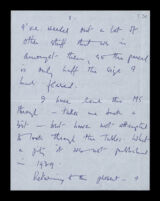 I've weeded out a lot of
other stuff that was in
amongst them, so the parcel
is only half the size I
had feared.
I have read this MS
through - takes me back a
bit - but have not attempted
to look through the tables. What
a pity it was not published
in 1939.
Returning to the present -